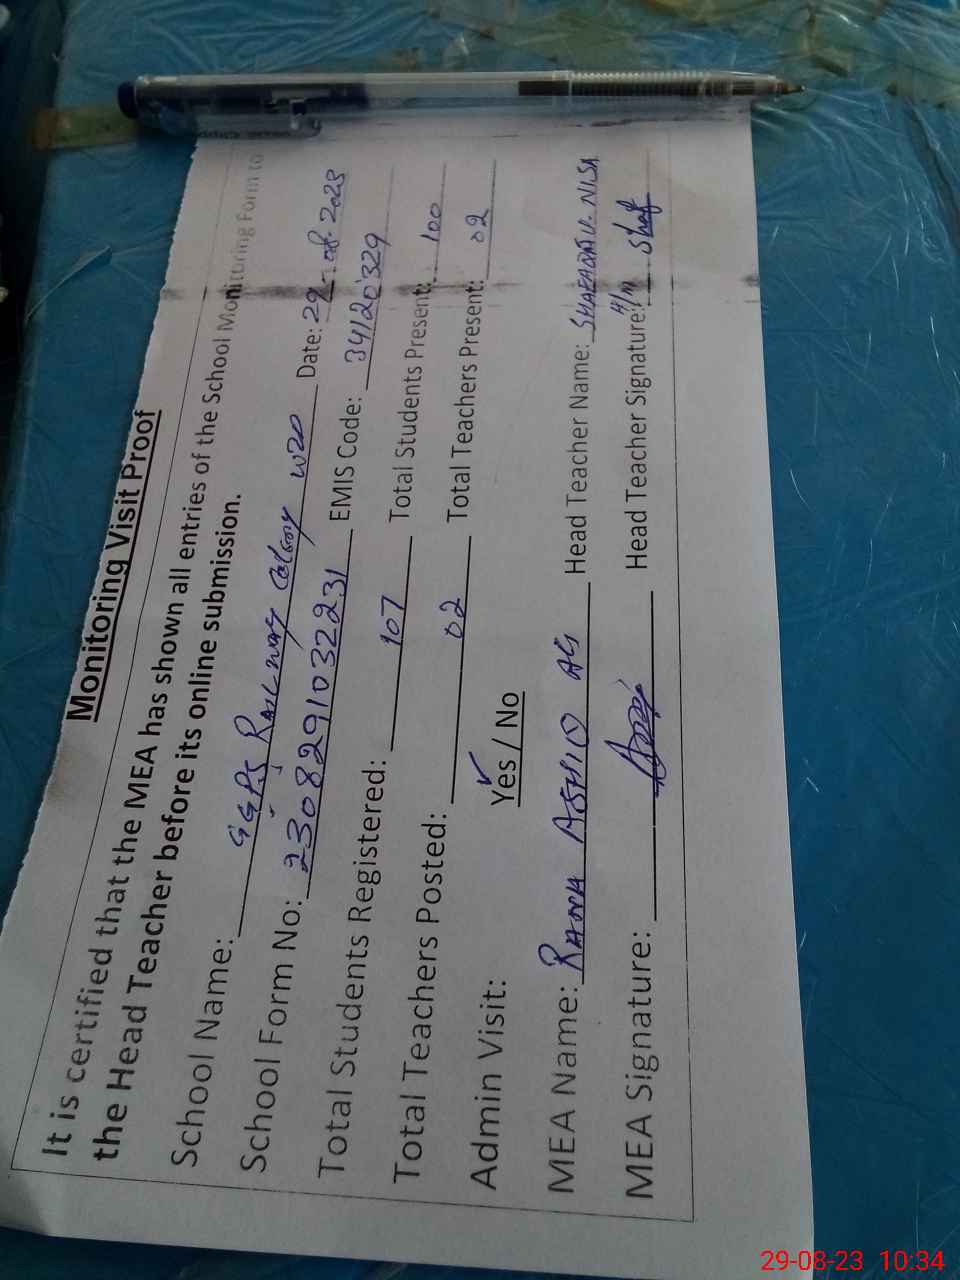 Monitoring Visit Proof
It is certified that the MEA has shown all entries of the School Monitoring Form to
the Head Teacher before its online submission.
School Name: GGPS Railway Colony WZD Date: 29-08-2023
School Form No: 2308291032231 EMIS Code: 34120329
Total Students Registered: 107 Total Students Present: 100
Total Teachers Posted: 02 Total Teachers Present: 02
Admin Visit: Yes / No
MEA Name: RANA ASHIQ Ali Head Teacher Name: SHAFAQAT-U-NISA
MEA Signature: Head Teacher Signature: Shaf
29-08-23 10:34